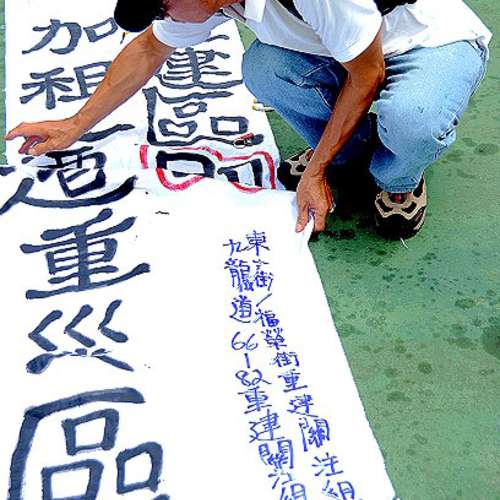 建區
加租重災區
東京街/福榮街重建關注組
九龍道66-82重建關注組